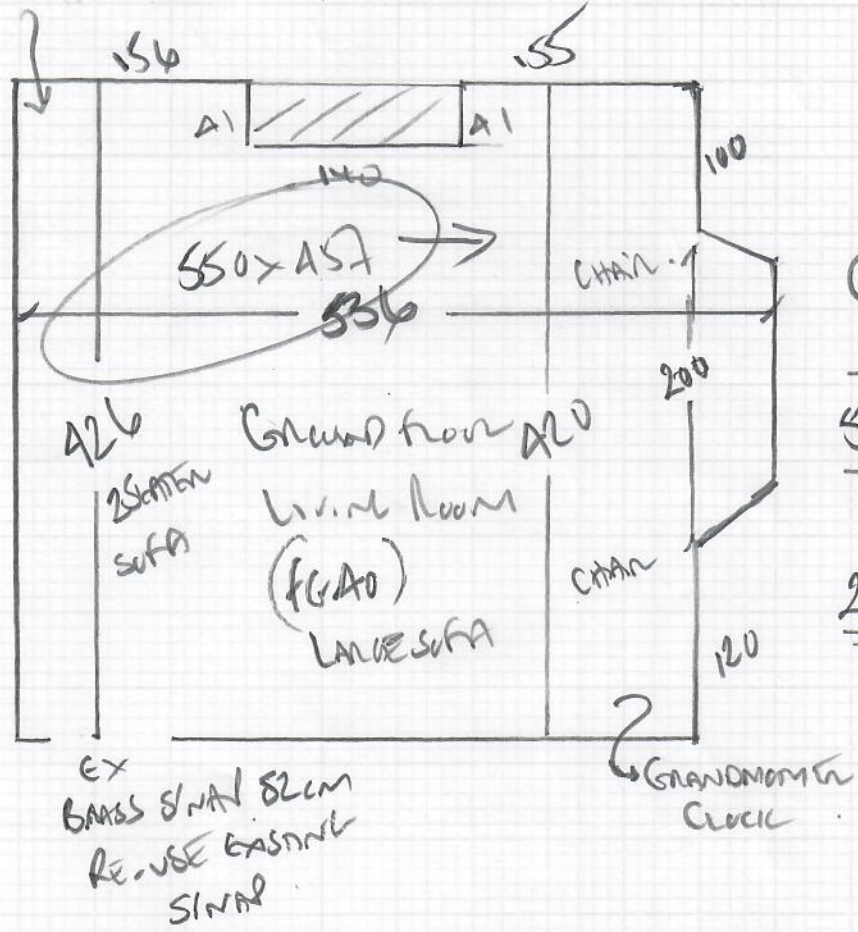 156
155
41
41
140
100
550 x 457
CHAIR
536
200
426
Ground floor
420
2 SEATER
SOFA
Living Room
CHAIR
LARGE SOFA
120
EX
BRASS S/NAP 82cm
RE-USE EXISTING
S/NAP
GRANDMOTHER
CLOCK